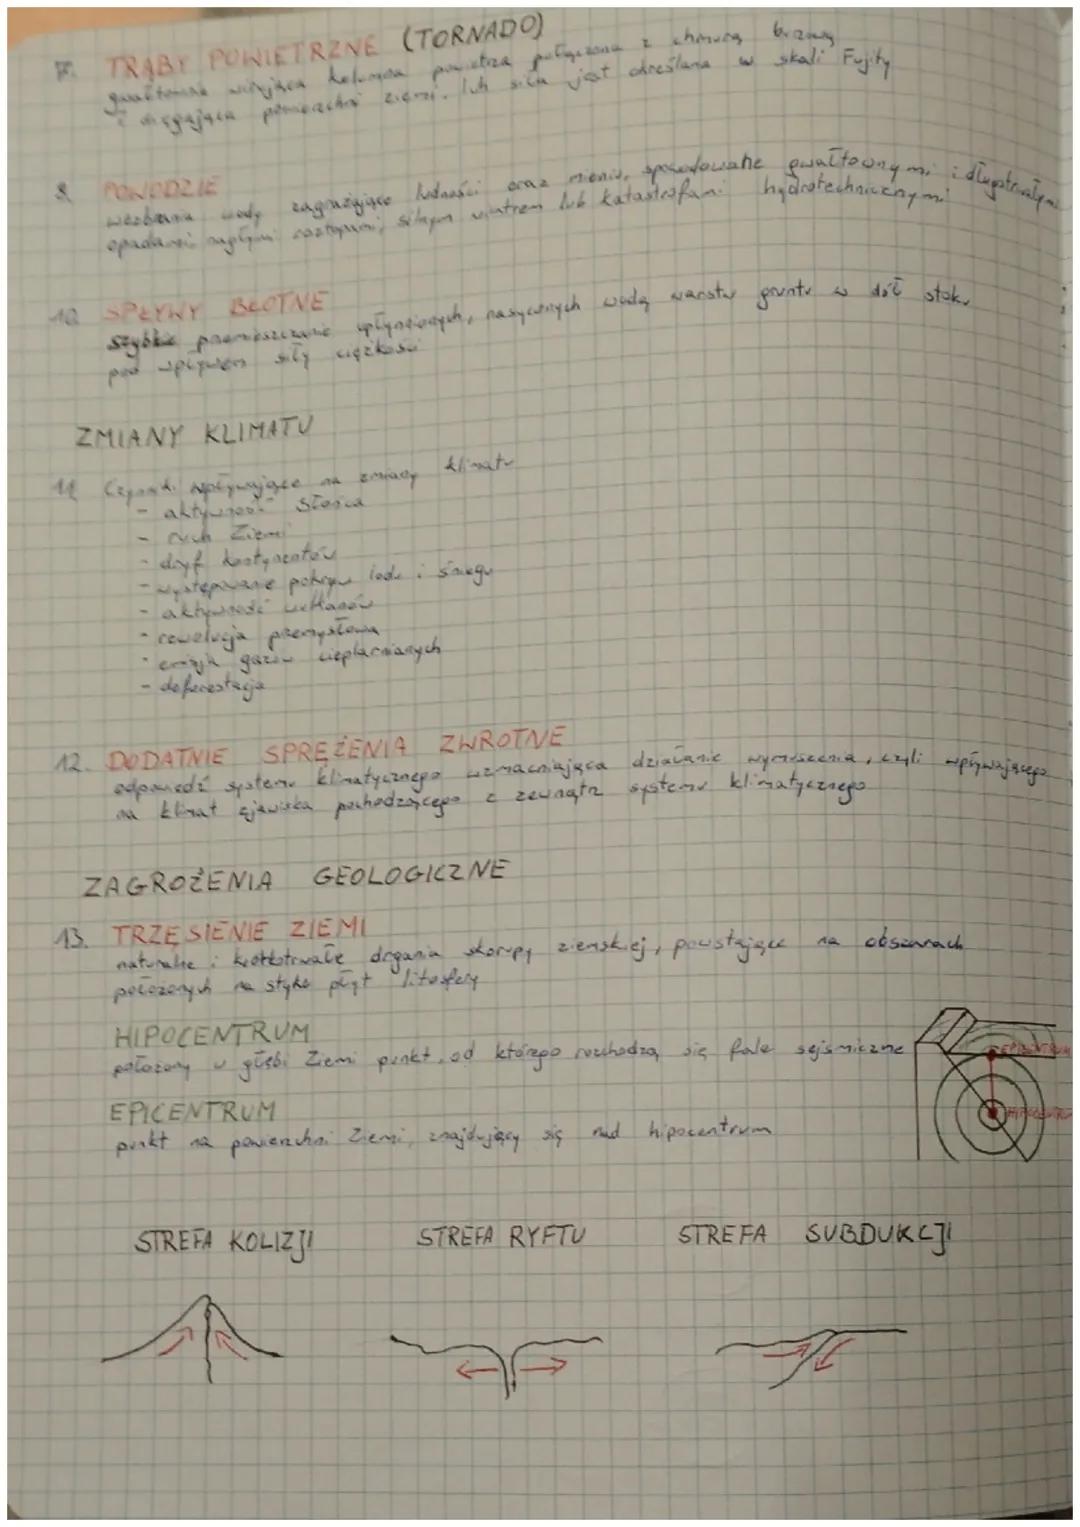 TRĄBY POWIETRZNE (TORNADO)
gwałtownie wirująca kolumna powietrza połączona z chmurą burzową
i sięgająca powierzchni ziemi. Ich siła jest określana w skali Fujity
POWODZIE
wezbrania wody zagrażające ludności oraz mieniu, spowodowane gwałtownymi i długotrwałymi
opadami, nagłymi roztopami, silnym wiatrem lub katastrofami hydrotechnicznymi
10. SPŁYWY BŁOTNE
szybkie przemieszczanie upłynnionych, nasyconych wodą warstw gruntu w dół stoku
pod wpływem siły ciężkości
ZMIANY KLIMATU
11 Czynniki wpływające na zmiany klimatu
- aktywność Słońca
- ruch Ziemi
- dryf kontynentów
- występowanie pokryw lodu i śniegu
- aktywność wulkanów
- rewolucja przemysłowa
- emisja gazów cieplarnianych
- deforestacja
12. DODATNIE SPRĘŻENIA ZWROTNE
odpowiedź systemu klimatycznego wzmacniająca działanie wymuszenia, czyli wpływającego
na klimat zjawiska pochodzącego z zewnątrz systemu klimatycznego
ZAGROŻENIA GEOLOGICZNE
13. TRZĘSIENIE ZIEMI
naturalne i krótkotrwałe drgania skorupy ziemskiej, powstające na obszarach
położonych na styku płyt litosfery
HIPOCENTRUM
położony w głębi Ziemi punkt, od którego rozchodzą się fale sejsmiczne
EPICENTRUM
HIPOCENTRUM
EPICENTRUM
punkt na powierzchni Ziemi, znajdujący się nad hipocentrum
STREFA KOLIZJI STREFA RYFTU STREFA SUBDUKCJI